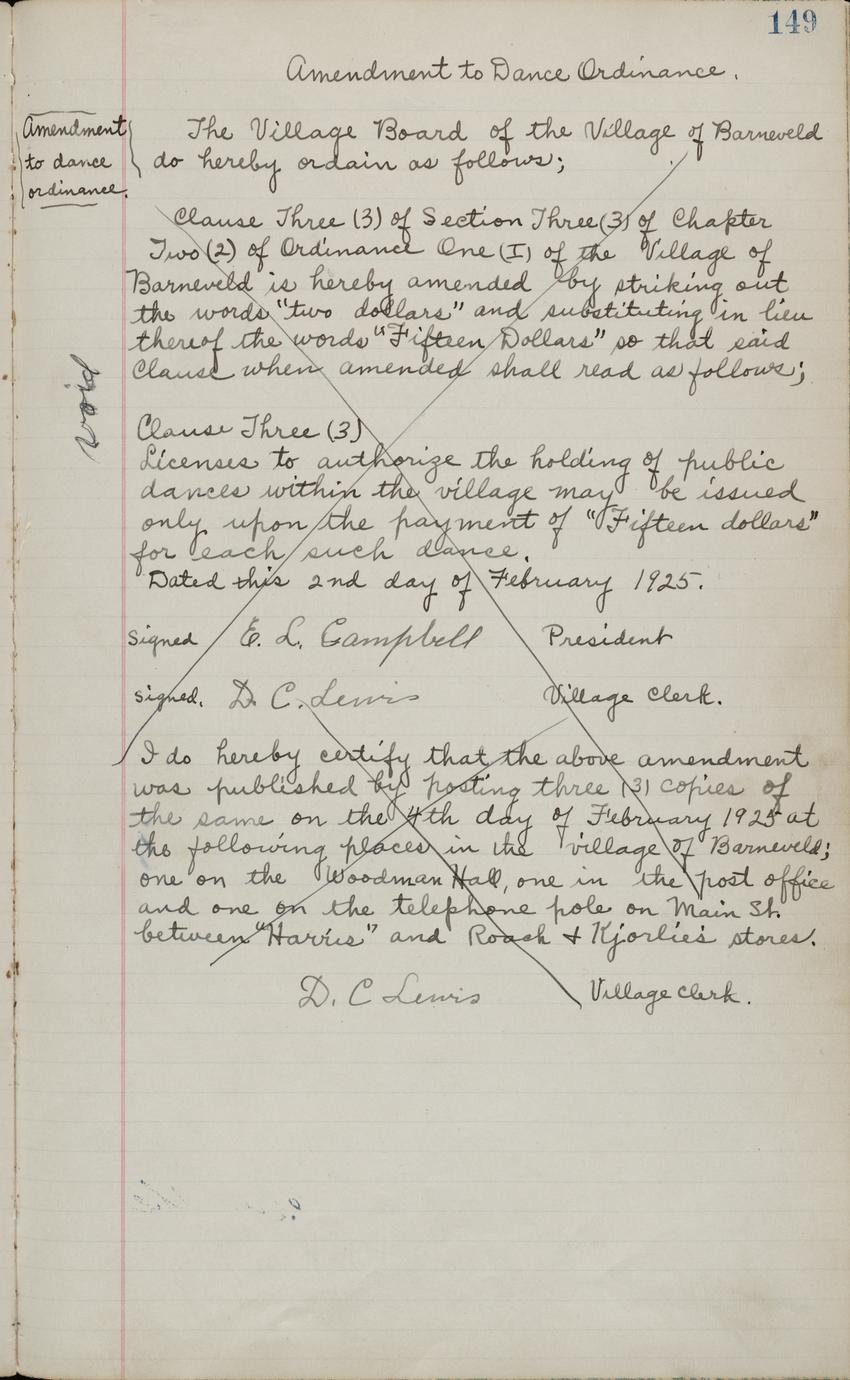 149
Amendment to Dance Ordinance.
Amendment
to dance
ordinance.
The Village Board of the Village of Barneveld
do hereby ordain as follows;
Clause Three (3) of Section Three (3) of Chapter
Two (2) of Ordinance One (I) of the Village of
Barneveld is hereby amended by striking out
the words "two dollars" and substituting in lieu
thereof the words "Fifteen Dollars" so that said
Clause when amended shall read as follows;
void
Clause Three (3)
Licenses to authorize the holding of public
dances within the village may be issued
only upon the payment of "Fifteen dollars"
for each such dance.
Dated this 2nd day of February 1925.
Signed E. L. Campbell President
Signed. D. C. Lewis Village Clerk.
I do hereby certify that the above amendment
was published by posting three (3) copies of
the same on the 4th day of February 1925 at
the following places in the village of Barneveld;
one on the Woodman Hall, one in the post office
and one on the telephone pole on Main St.
between "Harris" and Roach & Kjorlie's stores.
D. C Lewis Village Clerk.